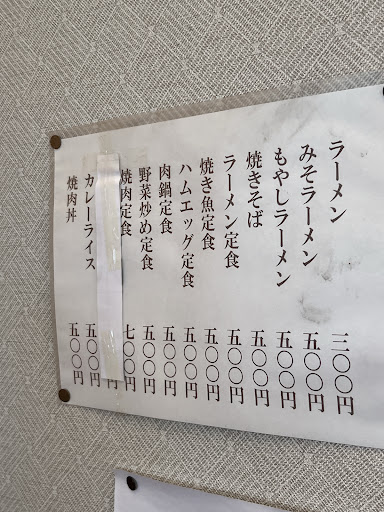 ラーメン 三〇〇円
みそラーメン 五〇〇円
もやしラーメン 五〇〇円
焼きそば 五〇〇円
ラーメン定食 五〇〇円
焼き魚定食 五〇〇円
ハムエッグ定食 五〇〇円
肉鍋定食 五〇〇円
野菜炒め定食 五〇〇円
焼肉定食 七〇〇円
円
カレーライス 五〇〇円
焼肉丼 五〇〇円